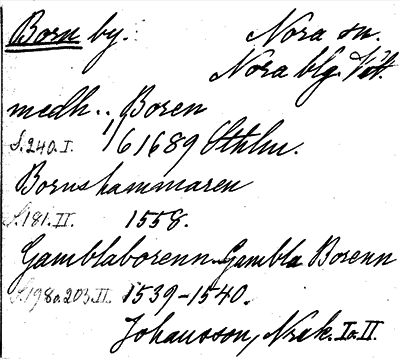 Born by. Nora sn.
Nora blg. Vstm.
medh.. Boren
S. 240. I. 1/6 1689 Sthlm.
Bornshammaren
S. 181. II. 1558.
Gamblaborenn Gambla Borenn
S. 198 o. 203. II. 1539-1540.
Johansson, Norask. I o. II.